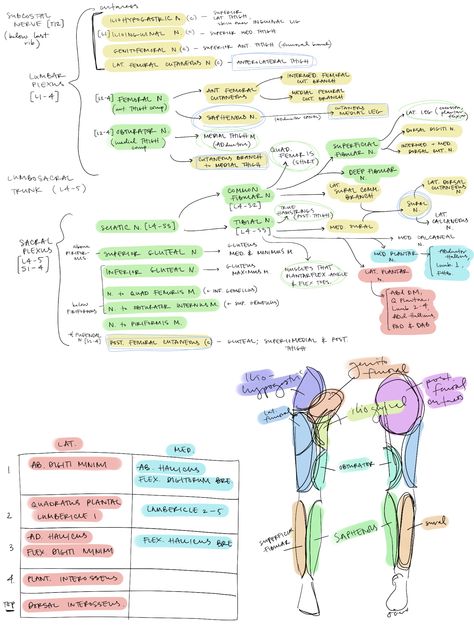 SUBCOSTAL NERVE [T12]
(below last rib)
LUMBAR PLEXUS [L1-4]
LUMBOSACRAL TRUNK (L4-5)
SACRAL PLEXUS [L4-5] S1-4]
cutaneous
ILIOHYPOGASTRIC N. (C) - SUPERIOR LAT THIGH,
[L1] ILIOINGUINAL N. (C) - SUPERIOR MED THIGH
GENITOFEMORAL N (C) - SUPERIOR ANT THIGH
LAT FEMORAL CUTANEOUS N (C) - ANTEROLATERAL THIGH
[L2-4] FEMORAL N.
(ant thigh comp)
ANT FEMORAL CUTANEOUS
INTERMED FEMORAL CUT BRANCH
MEDIAL FEMORAL CUT. BRANCH
SAPHENOUS N.
(adductor canal)
CUTANEOUS MEDIAL LEG
[L2-4] OBTURATOR N.
(medial thigh comp)
MEDIAL THIGH M. (ADductors)
CUTANEOUS BRANCH TO MEDIAL THIGH
QUAD. FEMORIS (SHORT)
SUPERFICIAL FIBULAR N.
LAT LEG
DORSAL DIGITI N.
INTERMED + MED DORSAL CUT N.
COMMON FIBULAR N [L4-S2]
DEEP FIBULAR N.
LAT SURAL COMM BRANCH
LAT DORSAL CUTANEOUS N.
SCIATIC N. [L4-S3]
TIBIAL N. [L4-S3]
TRUE HAMSTRINGS (POST. THIGH)
MED SURAL
SURAL N.
LAT CALCANEAL N.
MED CALCANEAL N.
above PIRIFORMIS
SUPERIOR GLUTEAL N. - GLUTEUS MED & MINIMUS M
INFERIOR GLUTEAL N. - GLUTEUS MAXIMUS M
MUSCLES THAT PLANTARFLEX ANKLE & FLEX TOES.
MED PLANTAR
LAT. PLANTAR N.
below PIRIFORMIS
N. to QUAD FEMORIS M (+ INF GEMELLUS)
N. to OBTURATOR INTERNUS M (+ SUP. GEMELLUS)
N. to PIRIFORMIS M.
POST. FEMORAL CUTANEOUS (C) - GLUTEAL, SUPEROMEDIAL & POST. THIGH
Abductor Hallucis,
Lumb 1,
Abd DM,
Q Plantae,
Lumb 2-4
Add Hallucis,
PAD & DAB
LAT.
MED.
1
AB. DIGITI MINIMI
AB. HALLICUS
FLEX. DIGITORUM BRE
2
QUADRATUS PLANTAE
LUMBERICLE 1
LUMBERICLE 2-5
3
AD. HALLICUS
FLEX DIGITI MINIMI
FLEX. HALLICUS BRE
4
PLANT. INTEROSSEUS
TOP
DORSAL INTEROSSEUS
ilio-hypogastric
genito femoral
lat. femoral
post. femoral cutaneous
OBTURATOR
SUPERFICIAL FIBULAR
SAPHENOUS
sural